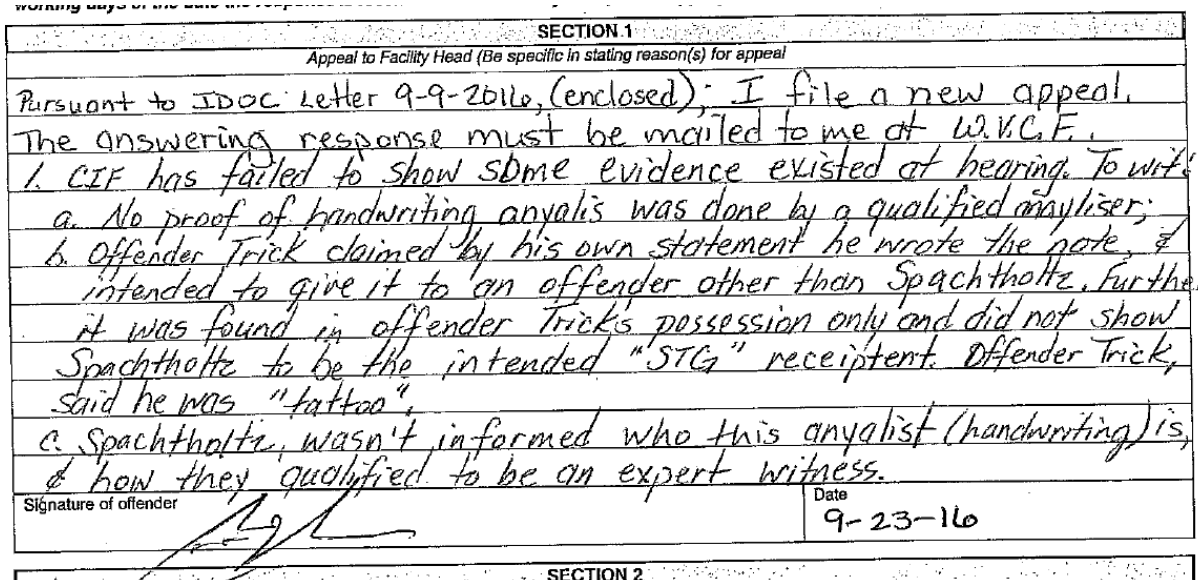 working days of the date the response is
SECTION 1
Appeal to Facility Head (Be specific in stating reason(s) for appeal
Pursuant to IDOC Letter 9-9-2016, (enclosed); I file a new appeal.
The answering response must be mailed to me at W.V.C.F.
1. CIF has failed to show some evidence existed at hearing. To wit:
a. No proof of handwriting anyalis was done by a qualified anayliser;
b. Offender Trick claimed by his own statement he wrote the note, &
intended to give it to an offender other than Spachtholtz. Further
it was found in offender Trick's possession only and did not show
Spachtholtz to be the intended "STG" receiptent. Offender Trick,
said he was "tattoo".
c. Spachtholtz, wasn't informed who this anyalist (handwriting) is,
& how they qualified to be an expert witness.
Signature of offender
Date
9-23-16
SECTION 2